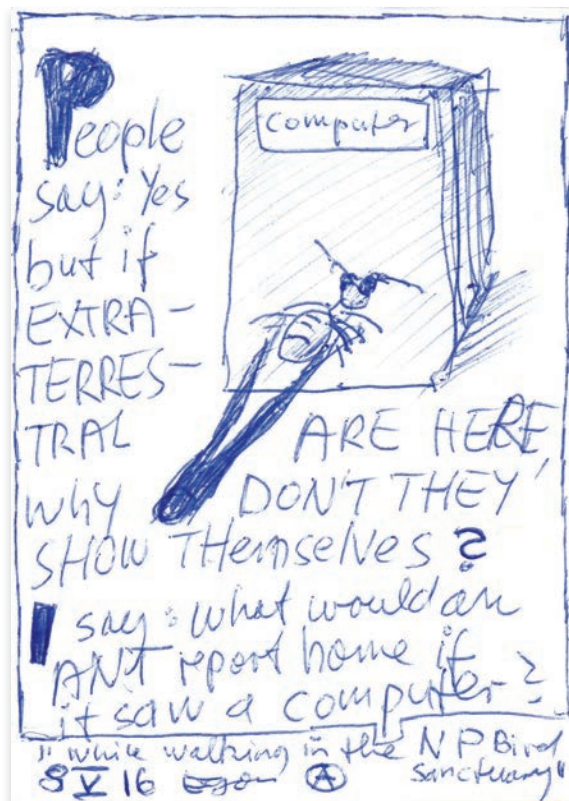 computer
People
say: Yes
but if
EXTRA-
TERRES-
TRAL ARE HERE,
why DON'T THEY
SHOW THemselves?
I say: what would an
ANT report home if
it saw a computer?
"while walking in the NP Bird
Sanctuary"
8 V 16 Ⓐ